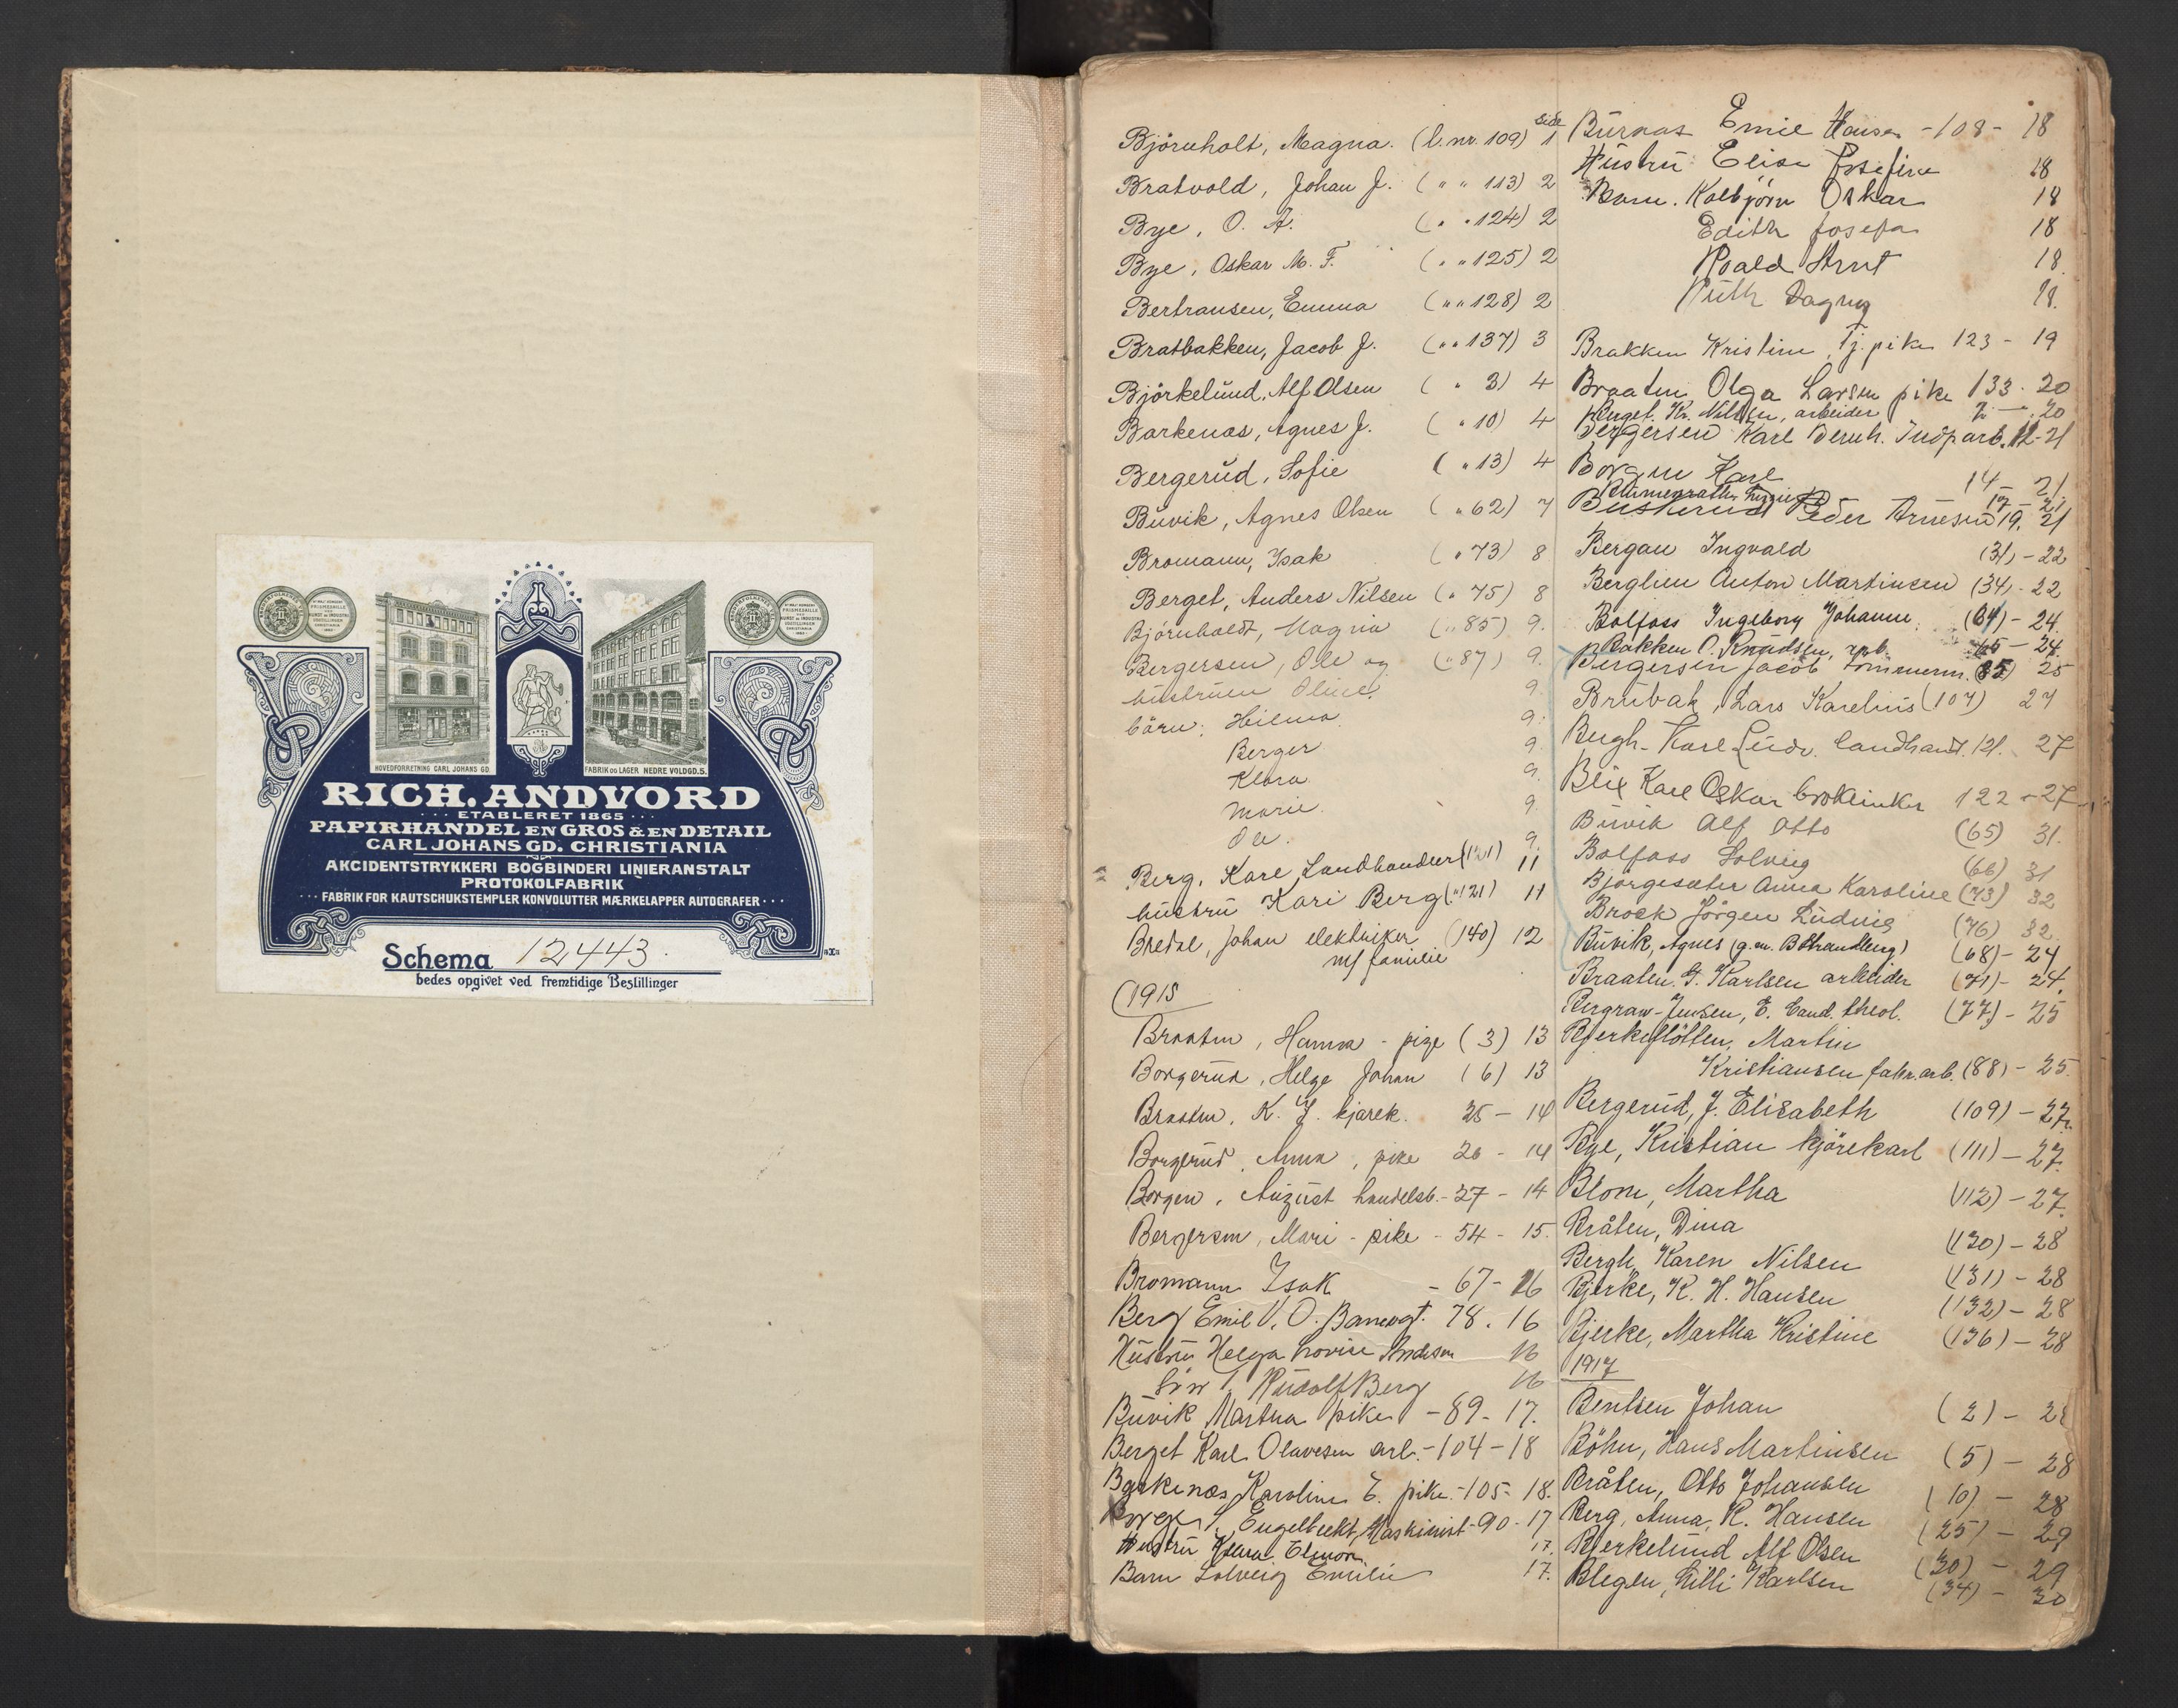 HOVEDFORRETNING CARL JOHANS GD.
FABRIK OG LAGER NEDRE VOLDGD. 5.
RICH. ANDVORD
ETABLERET 1865
PAPIRHANDEL EN GROS & EN DETAIL
CARL JOHANS GD. CHRISTIANIA
AKCIDENTSTRYKKERI BOGBINDERI LINIERANSTALT
PROTOKOLFABRIK
FABRIK FOR KAUTSCHUKSTEMPLER KONVOLUTTER MÆRKELAPPER AUTOGRAFER
Schema 12443.
bedes opgivet ved fremtidige Bestillinger
side
Björnholt, Magna. (l. nr. 109) 1
Bratvold, Johan J. ( " " 113) 2
Bye, O. A. ( " " 124) 2
Bye, Oskar M. F. ( " " 125) 2
Bertransen, Emma ( " " 128) 2
Bratbakken, Jacob J. ( " " 137) 3
Björkelund, Alf Olsen ( " 3) 4
Barkenæs, Agnes J. ( " 10) 4
Bergerud, Sofie ( " 13) 4
Buvik, Agnes Olsen ( " 62) 7
Bromann, Isak ( " 73) 8
Berget, Anders Nilsen ( " 75) 8
Björnholdt, Magna ( " 85) 9.
Bergersen, Ole og ( " 87) 9.
hustruen Oline. 9.
börn: Hilma 9.
Berger 9.
Klara 9.
Marie. 9.
Ole. 9.
Berg, Karl Landhandler (121) 11
hustru Kari Berg ( " 121) 11
Bredal, Johan elektriker (140) 12
m/ familie
(1915
Braaten, Hanna - pige (3) 13
Borgerud, Helge Johan (6) 13
Braaten, K. J. kjørek. 25 - 14
Borgerud, Anna, pike 26 - 14
Borgen, August handelsb. - 27 - 14
Bergersen, Mari - pike - 54 - 15.
Bromann Isak - 67 - 16
Berg Emil V. O. Banevogt. 78. 16
Hustru Helga Lovise Andersen 16
Sön T. Rudolf Berg 16
Buvik Martha pike - 89 - 17.
Berget Karl Olavesen arb. - 104 - 18
Barkenæs Karoline E. pike. - 105 - 18.
Engelbrekt, Maskinist - 90 - 17
Hustru Klara Elinor 17.
Barn Solveig Emilie 17.
Burnas Emil Hansen - 108 - 18
Hustru Elise Josefine 18
Barn. Kolbjörn Oskar 18
Edith Josefa 18
Roald Arnt 18.
Ruth Dagny 18.
Brakken Kristine, Tj. pike 123 - 19
Braaten Olga Larsen pike 133 - 20
Berget. Kr. Nilsen, arbeider 7 - 20
Bergersen Karl Bernh. Indparb. 12 - 21
Borgen Karl 14 - 21
17 - 21
Buskerud Peder Arnesen 19. 21
Bergan Ingvald (31) - 22
Berglien Anton Martinsen (34) - 22
Bolfoss Ingeborg Johanne. (64) - 24
Bakken O. Knudsen, arb. 65 - 24.
Bergersen Jacob tömmerm. (85) 25
Brubak, Lars Karelius (107) 27
Bergh - Karl Ludv. landhand. 121. 27
Blix Karl Oskar 122 - 27
Buvik Alf Otto (65) 31.
Bolfoss Solveig (66) 31
Bjørgesæter Anna Karoline (73) 32
Brock Jörgen Ludvig (76) 32
Buvik, Agnes (g. m. B Strandberg) (68) - 24
Braaten. G. Karlsen arbeider (71) - 24.
Bergrav-Jensen, E. Cand. theol. (77) - 25
Bjerkeflötten, Martin
Kristiansen fabr. arb. (88) - 25.
Bergerud, J. Elisabeth (109) - 27.
Bye, Kristian kjörekarl (111) - 27.
Blom, Martha (112) - 27.
Bråten, Dina (130) - 28
Bergh Karen Nilsen (131) - 28
Bjerke, K. H. Hansen (132) - 28
Bjerke, Martha Kristine (136) - 28
1917
Bentsen Johan (2) - 28
Böhn, Hans Martinsen (5) - 28
Bråten, Otto Johansen (10) - 28
Berg, Anna, K. Hansen (25) - 29
Bjerkelund Alf Olsen (30) - 29
Blegen, Lilli Karlsen (34) - 30